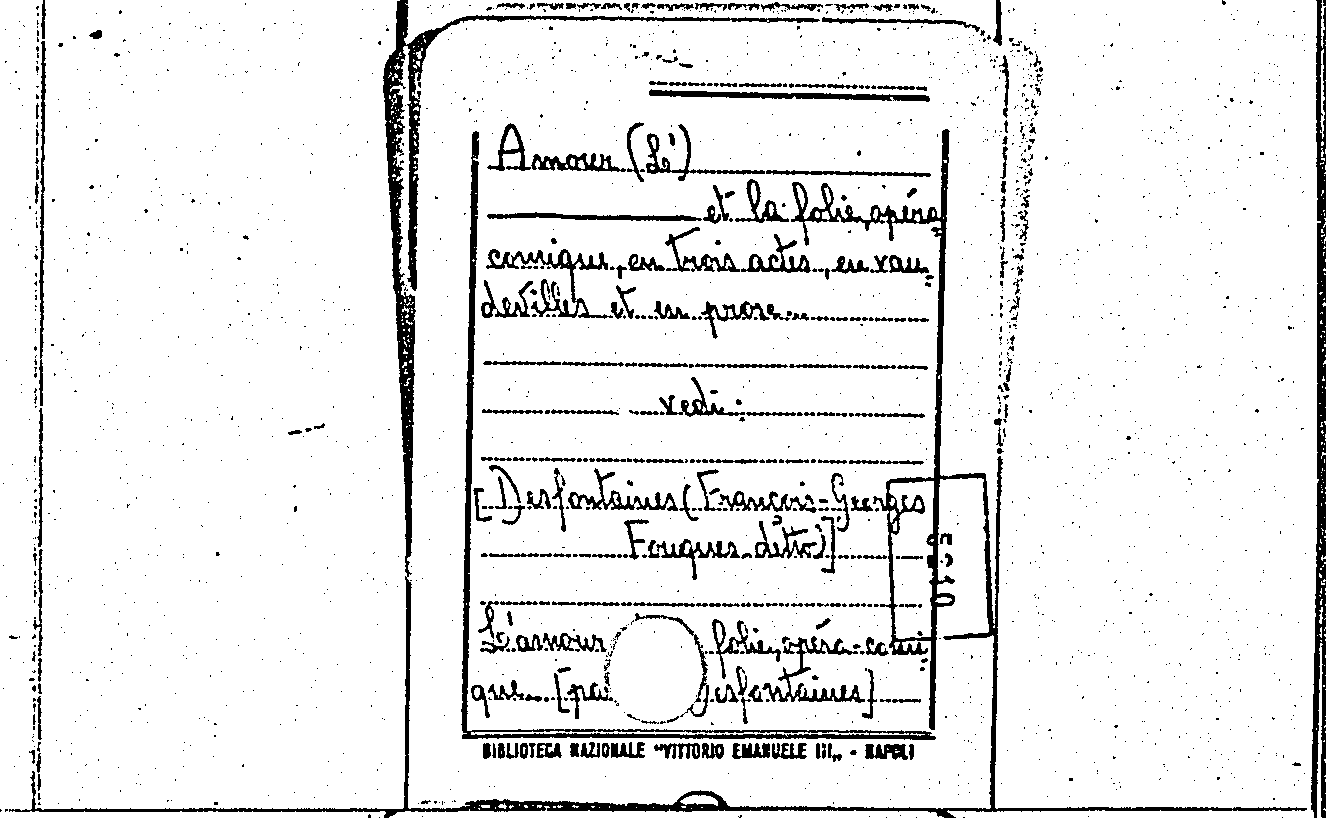 Amour (Le)
et la folie, opéra
comique, en trois actes, en vau
devilles et en prose...
vedi:
[Desfontaines (François-Georges
Fouques, detto)]
L'amour folie, opéra-comi
que... [pa esfontaines]
BIBLIOTECA NAZIONALE "VITTORIO EMANUELE III„ - NAPOLI